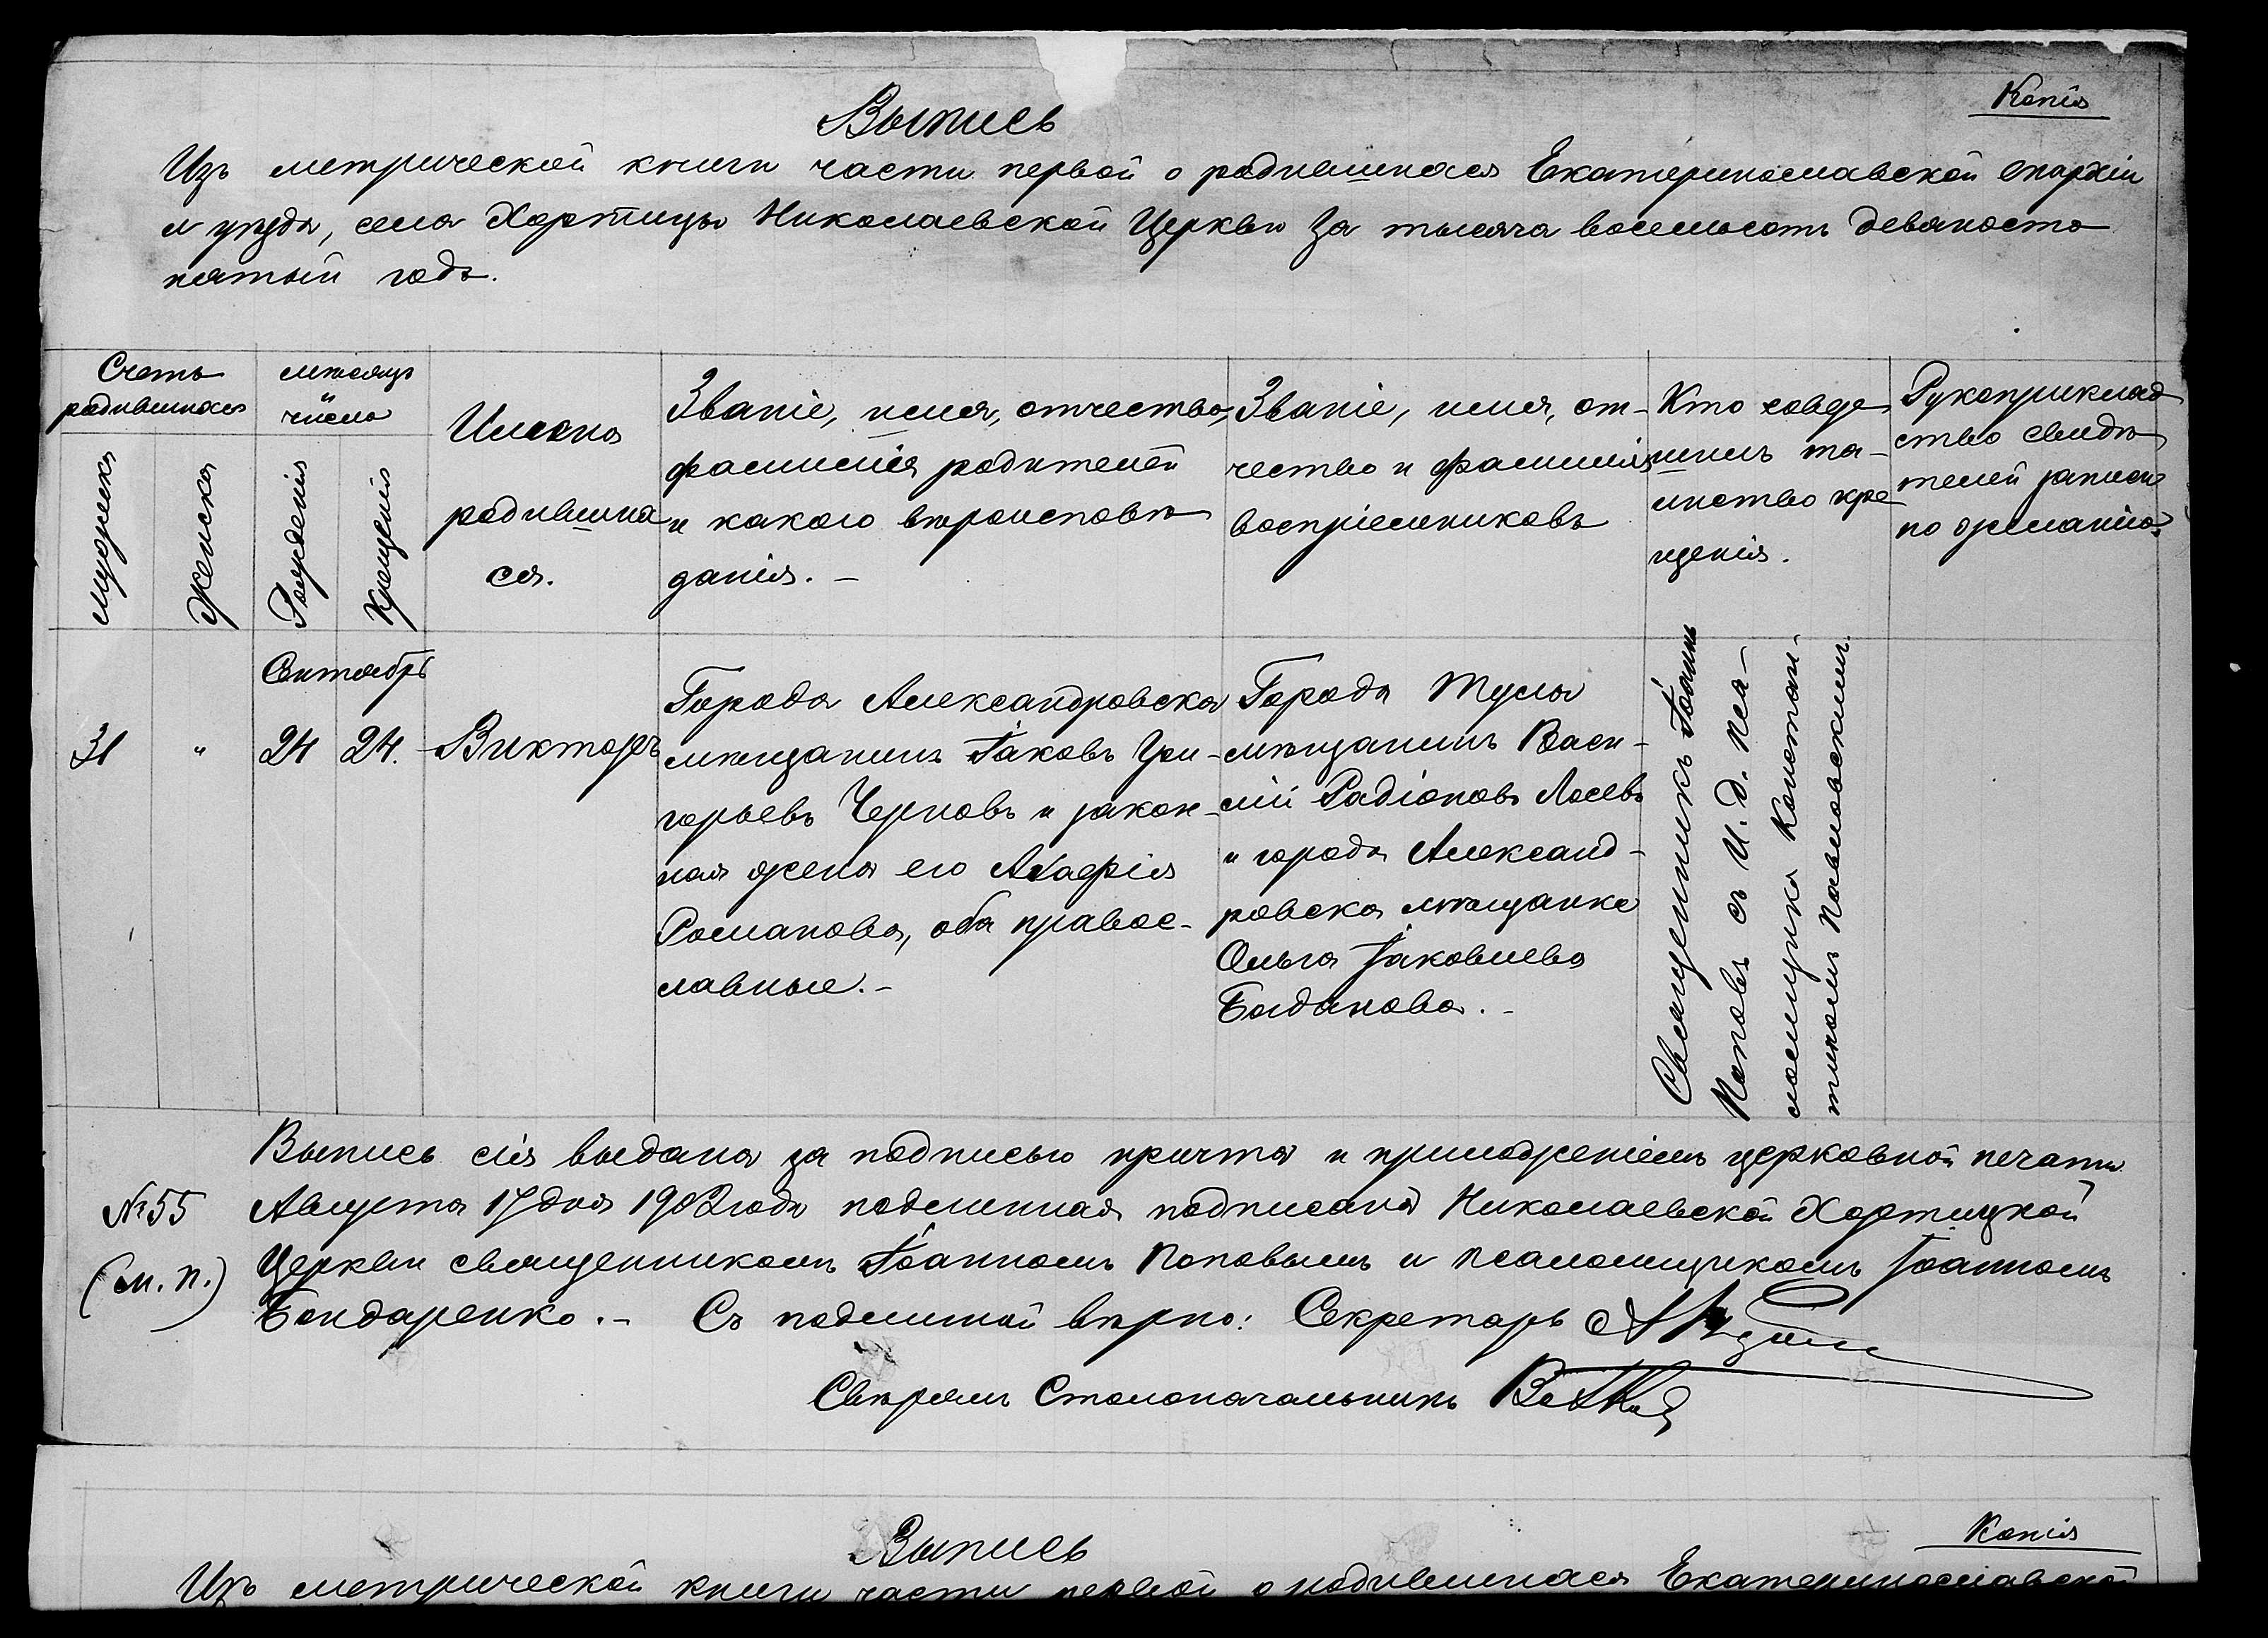 Копія
Выпись
Изъ метрической книги части первой о родившихся Екатеринославской епархіи
и уѣзда, села Хортицы Николаевской Церкви за тысяча восемьсотъ девяносто
пятый годъ.
Счетъ
родившихся
мѣсяцъ
и
число
Мужеска
Женска
Рожденія
Крещенія
Имена
родившиха
ся.
Званіе, имя, отчество,
фамилія родителей
и какого вѣроисповѣ
данія. –
Званіе, имя, от-
чество и фамилія
воспріемниковъ
Кто совер
шилъ та-
инство кре
щенія.
Рукоприклад
ство свидѣ
телей записи
по желанію
Сентябрь
31 " 24 24. Викторъ
Города Александровска
мѣщанинъ Іаковъ Гри-
горьевъ Черновъ и закон-
ная жена его Агафія
Романова, оба правос-
лавные. –
Города Тулы
мѣщанинъ Васи-
лій Радіоновъ Лосевъ
и города Александ-
ровска мѣщанка
Ольга Іаковлева
Богданова. –
Священникъ Іоаннъ
Поповъ съ И. д. Пса-
ломщика Констан-
тиномъ Павловскимъ.
Выпись сія выдана за подписью причта и приложеніемъ церковной печати
№ 55 Августа 17 дня 1902 года подлинная подписана Николаевской Хортицкой
(м. п.) Церкви священникомъ Іоанномъ Поповымъ и псаломщикомъ Іоанномъ
Бондаренко. – Съ подлинной вѣрно: Секретарь
Свѣрялъ Столоначальникъ
Копія
Выпись
Изъ метрической книги части первой о родившихся Екатеринославской